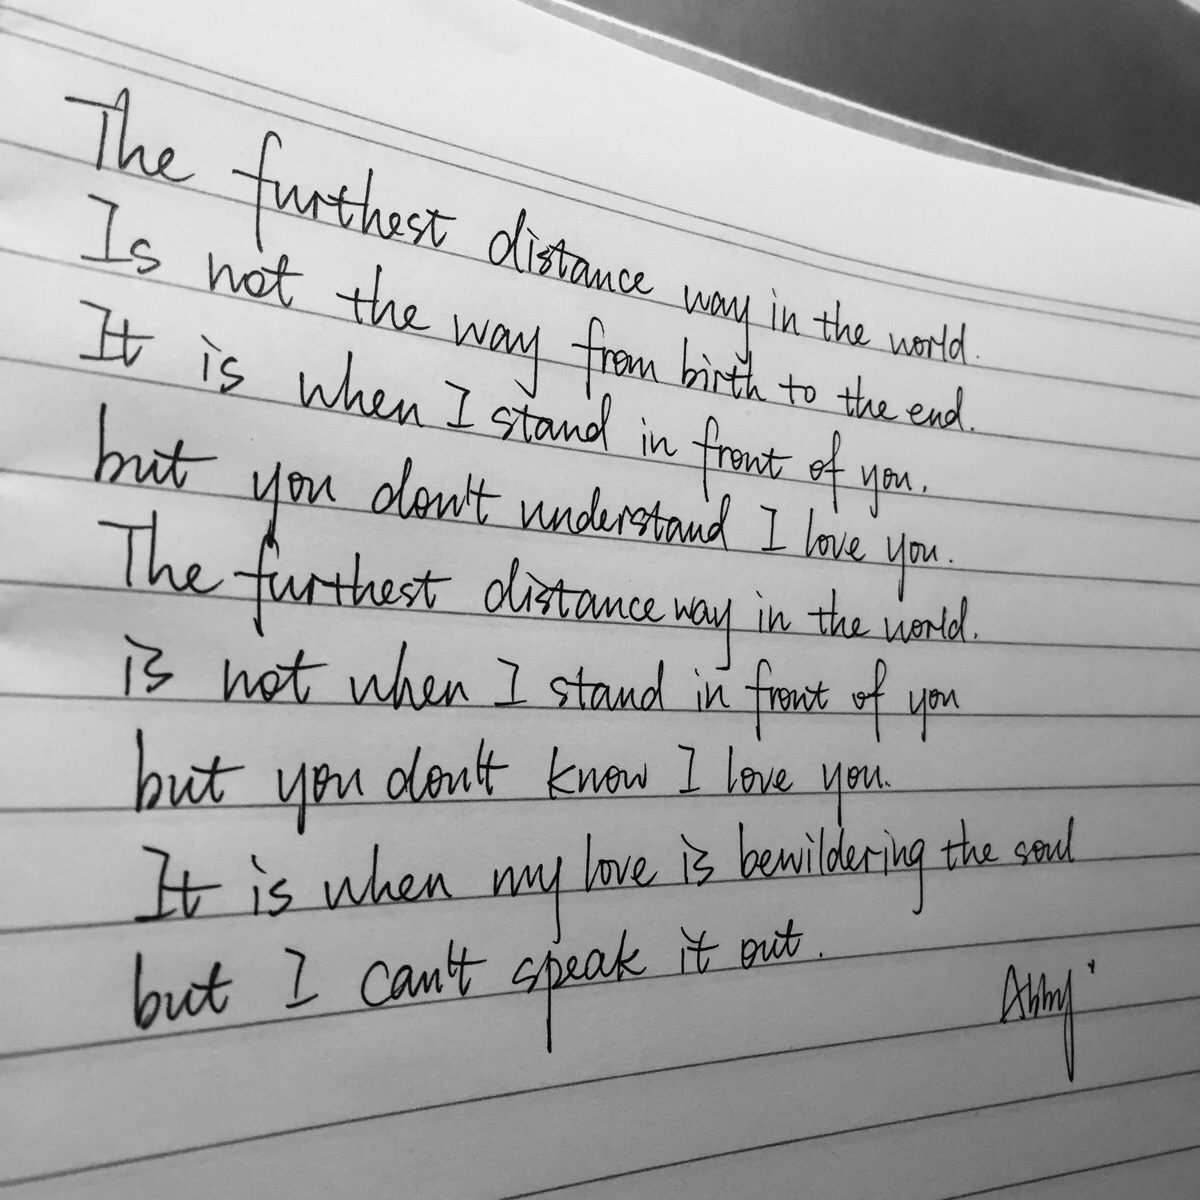 The furthest distance way in the world.
Is not the way from birth to the end.
It is when I stand in front of you.
but you don't understand I love you.
The furthest distance way in the world.
is not when I stand in front of you
but you don't know I love you.
It is when my love is bewildering the soul
but I can't speak it out.
Abby